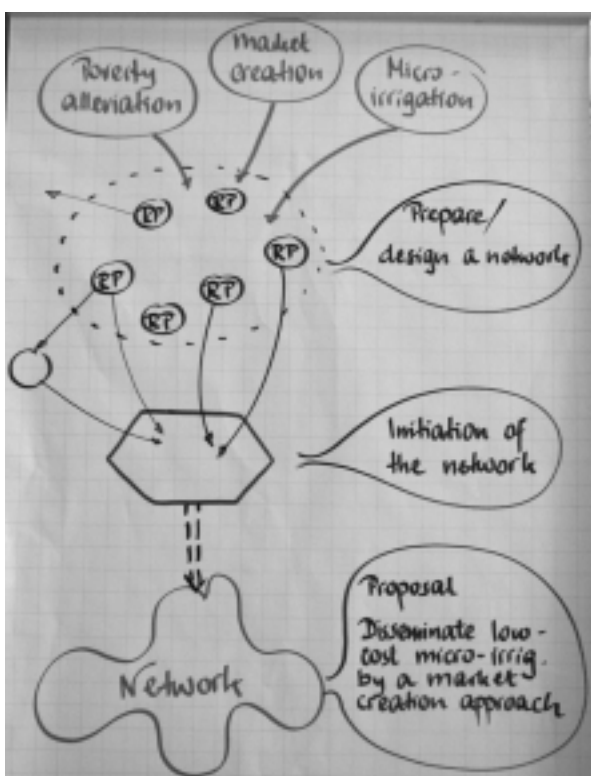 Poverty
alleviation
market
creation
Micro-
irrigation
RP
RP
RP
RP
RP
RP
Prepare/
design a network
Initiation of
the network
Proposal
Disseminate low-
cost micro-irrig.
by a market
creation approach
Network